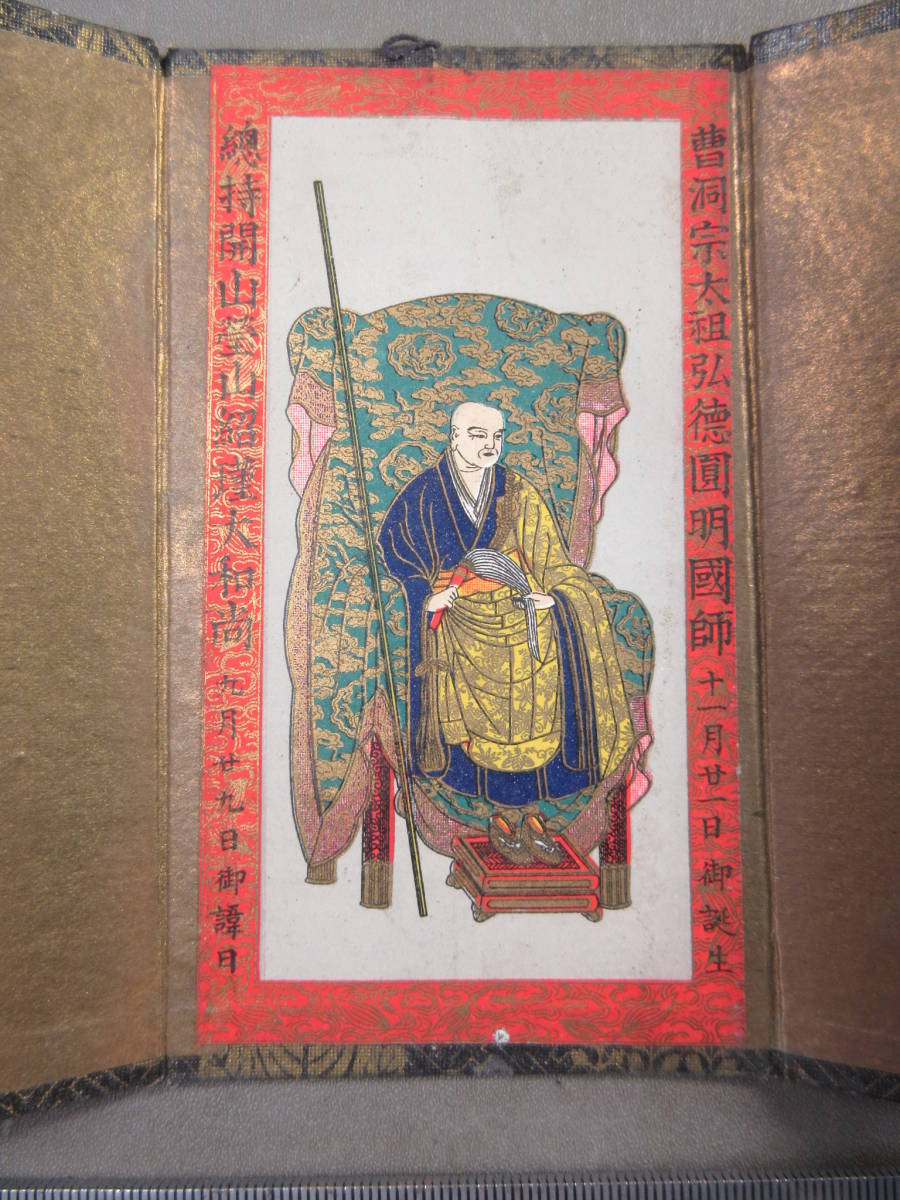 曹洞宗太祖弘德圓明國師十一月廿一日御誕生
總持開山瑩山紹瑾大和尚九月廿九日御諱日